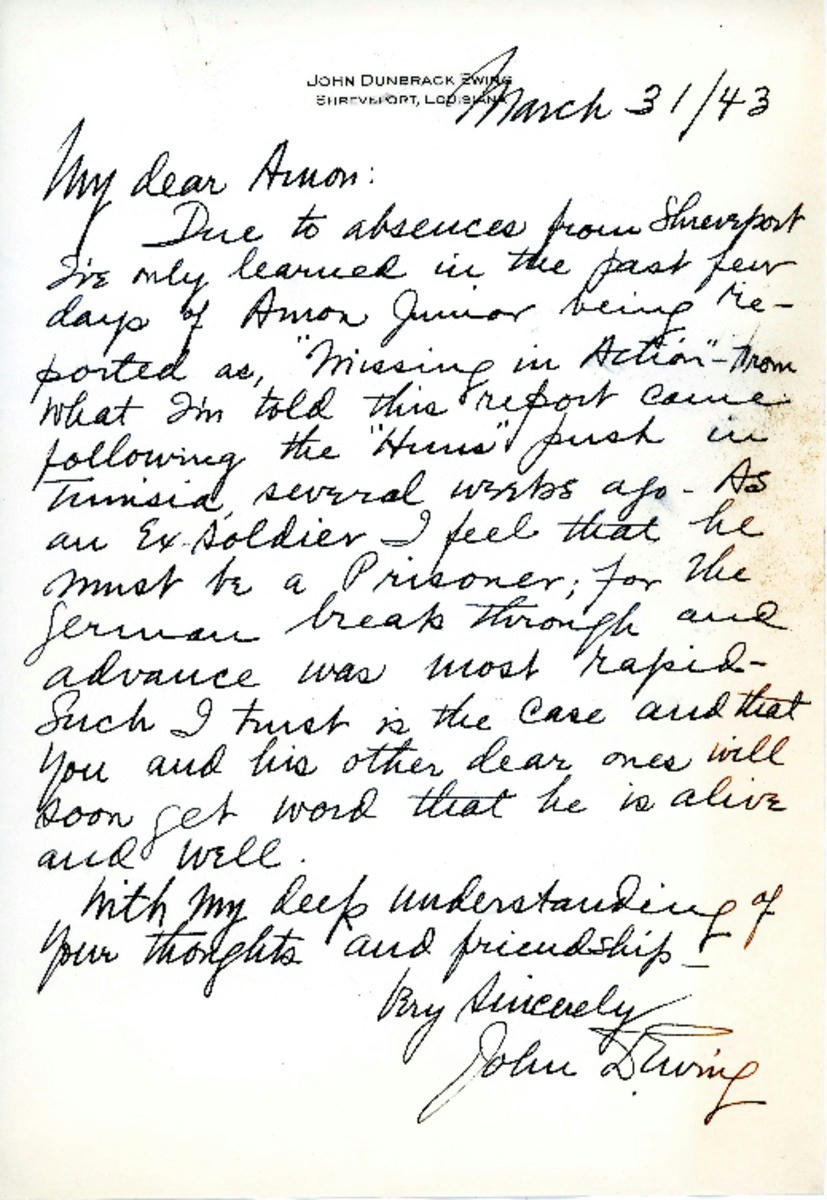 JOHN DUNBRACK EWING
SHREVEPORT, LOUISIANA
March 31/43
My dear Amon:
Due to absences from Shreveport
I've only learned in the past few
days of Amon Junior being re-
ported as, "Missing in Action" - From
what I'm told this report came
following the "Huns" push in
Tunisia, several weeks ago - As
an Ex-Soldier I feel that he
must be a Prisoner; for the
German break through and
advance was most rapid -
Such I trust is the case and that
you and his other dear ones will
soon get word that he is alive
and well.
With my deep understanding of
your thoughts and friendship -
Very Sincerely
John D. Ewing